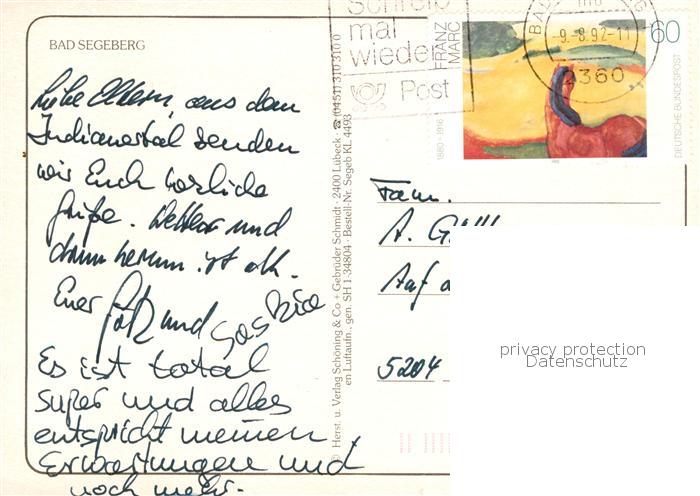 BAD SEGEBERG
Liebe Eltern, aus dem
Indianertal senden
wir Euch herzliche
Grüße. Wetter und
drum herum ist ok.
Euer Götz und Saskia
Es ist total
super und alles
entspricht meinen
Erwartungen und
noch mehr.
© Herst. u. Verlag Schöning & Co + Gebrüder Schmidt · 2400 Lübeck · ☎ (0451) 310 310 0
en Luftaufn., gen. SH 1-34804 · Bestell-Nr. Segeb KL 4493
Schreib
mal
wieder
Post
BAD
-9.-8.92-11
mb
2360
FRANZ
MARC
1880-1916
60
DEUTSCHE BUNDESPOST
Fam.
A.
Auf
5204
privacy protection
Datenschutz